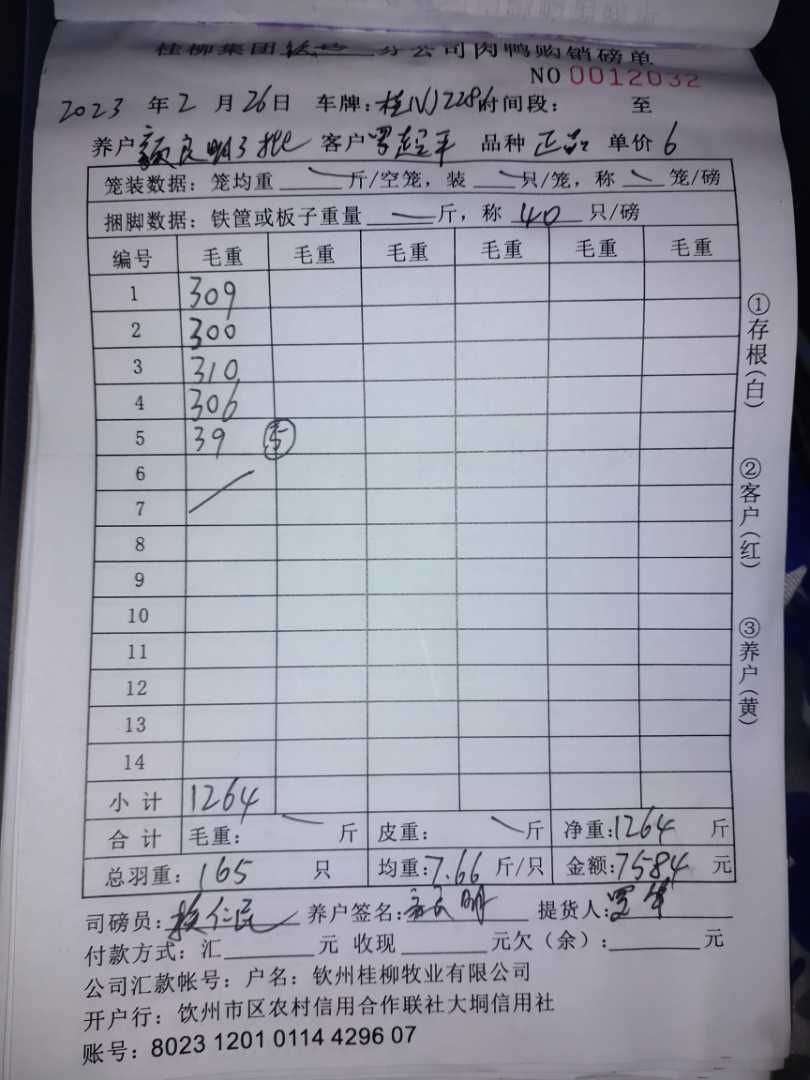 桂柳集团钦州分公司肉鸭购销磅单
NO 0012032
2023 年 2 月 26 日 车牌: 桂N 2286 时间段: 至
养户 良明3批 客户 罗超平 品种 正品 单价 6
笼装数据: 笼均重 斤/空笼, 装 只/笼, 称 笼/磅
捆脚数据: 铁筐或板子重量 斤, 称 40 只/磅
编号 毛重 毛重 毛重 毛重 毛重 毛重
1 309
2 300
3 310
4 306
5 39 ⑤
6
7
8
9
10
11
12
13
14
小计 1264
合计 毛重: 斤 皮重: 斤 净重: 1264 斤
总羽重: 165 只 均重: 7.66 斤/只 金额: 7584 元
司磅员: 仁民 养户签名: 明 提货人: 罗
付款方式: 汇 元 收现 元欠(余): 元
公司汇款帐号: 户名: 钦州桂柳牧业有限公司
开户行: 饮州市区农村信用合作联社大垌信用社
账号: 8023 1201 0114 4296 07
①存根(白)
②客户(红)
③养户(黄)